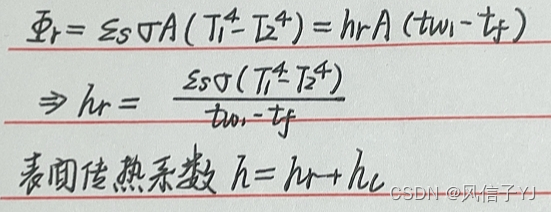 Φr = εsσA(T₁⁴-T₂⁴) = hrA(tw₁-tf)
⇒ hr = εsσ(T₁⁴-T₂⁴) / tw₁-tf
表面传热系数 h = hr + hc
CSDN @风信子YJ